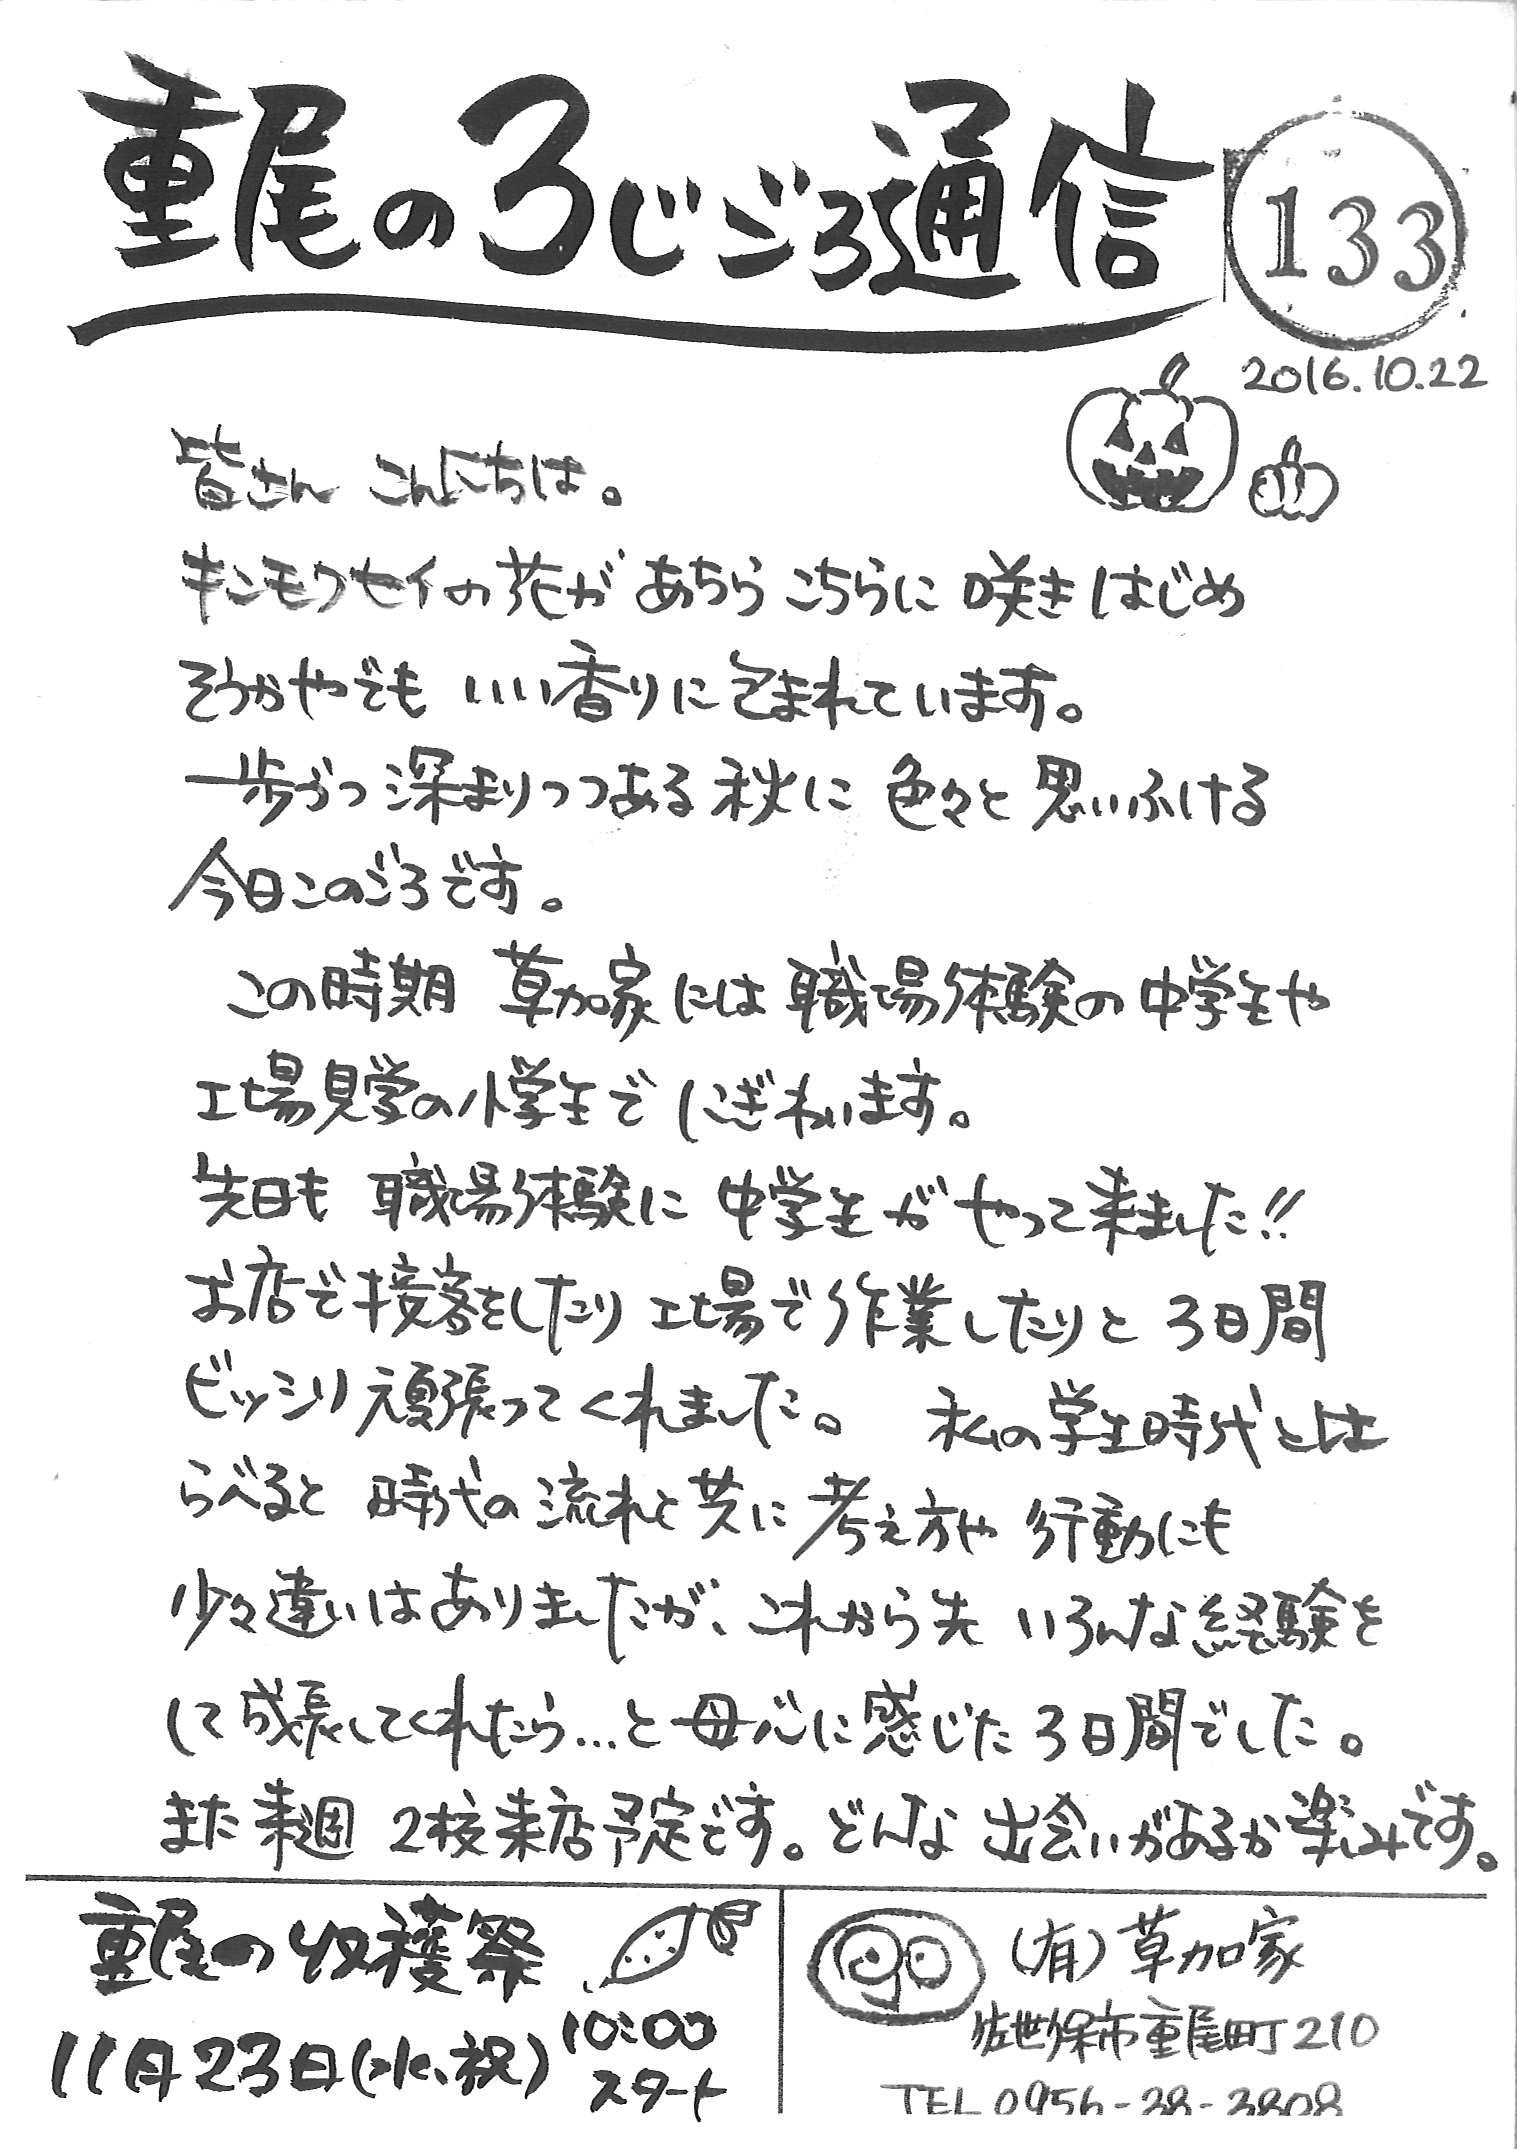 重尾のろじごろ通信
133
2016.10.22
皆さん こんにちは。
キンモクセイの花が あちらこちらに 咲きはじめ
そうかやでも いい香りに包まれています。
一歩づつ 深まりつつある 秋に 色々と 思いふける
今日このごろです。
この時期 草加家には 職場体験の 中学生や
工場見学の小学生で にぎわいます。
先日も 職場体験に 中学生が やって来ました!!
お店で接客をしたり 工場で作業したりと 3日間
ビッシリ頑張ってくれました。 私の学生時代とは
らべると 時代の流れと共に 考え方や 行動にも
少々違いはありましたが、これから先 いろんな経験を
して成長してくれたら…と母心に感じた3日間でした。
また来週 2校来店予定です。どんな出会いがあるか楽しみです。
重尾の収穫祭
11月23日(水、祝) 10:00
スタート
(有)草加家
佐世保市重尾町210
TEL 0956-28-3808